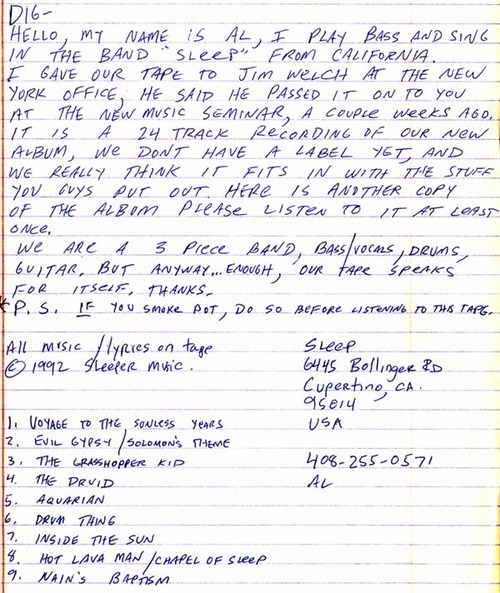 DIG-
HELLO, MY NAME IS AL, I PLAY BASS AND SING
IN THE BAND "SLEEP" FROM CALIFORNIA.
I GAVE OUR TAPE TO JIM WELCH AT THE NEW
YORK OFFICE, HE SAID HE PASSED IT ON TO YOU
AT THE NEW MUSIC SEMINAR, A COUPLE WEEKS AGO.
IT IS A 24 TRACK RECORDING OF OUR NEW
ALBUM, WE DONT HAVE A LABEL YET, AND
WE REALLY THINK IT FITS IN WITH THE STUFF
YOU GUYS PUT OUT. HERE IS ANOTHER COPY
OF THE ALBUM PLEASE LISTEN TO IT AT LEAST
ONCE.
WE ARE A 3 PIECE BAND, BASS/VOCALS, DRUMS,
GUITAR. BUT ANYWAY... ENOUGH, OUR TAPE SPEAKS
FOR ITSELF, THANKS.
* P.S. IF YOU SMOKE POT, DO SO BEFORE LISTENING TO THIS TAPE.
All music /lyrics on tape
© 1992 Sleeper Music.
SLEEP
6445 Bollinger RD
Cupertino, CA.
95014
USA
408-255-0571
AL
1. VOYAGE TO THE SUNLESS YEARS
2. EVIL GYPSY/SOLOMON'S THEME
3. THE GRASSHOPPER KID
4. THE DRUID
5. AQUARIAN
6. DRUM THING
7. INSIDE THE SUN
8. HOT LAVA MAN/CHAPEL OF SLEEP
9. NAIN'S BAPTISM